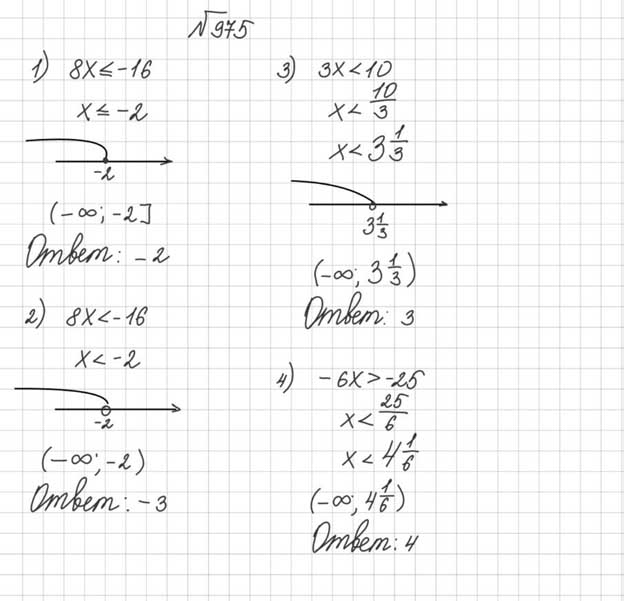 №975
1) 8x ≤ -16
x ≤ -2
-2
(-∞; -2]
Ответ: -2
2) 8x < -16
x < -2
-2
(-∞; -2)
Ответ: -3
3) 3x < 10
x < 10/3
x < 3 1/3
3 1/3
(-∞; 3 1/3)
Ответ: 3
4) -6x > -25
x < 25/6
x < 4 1/6
(-∞; 4 1/6)
Ответ: 4